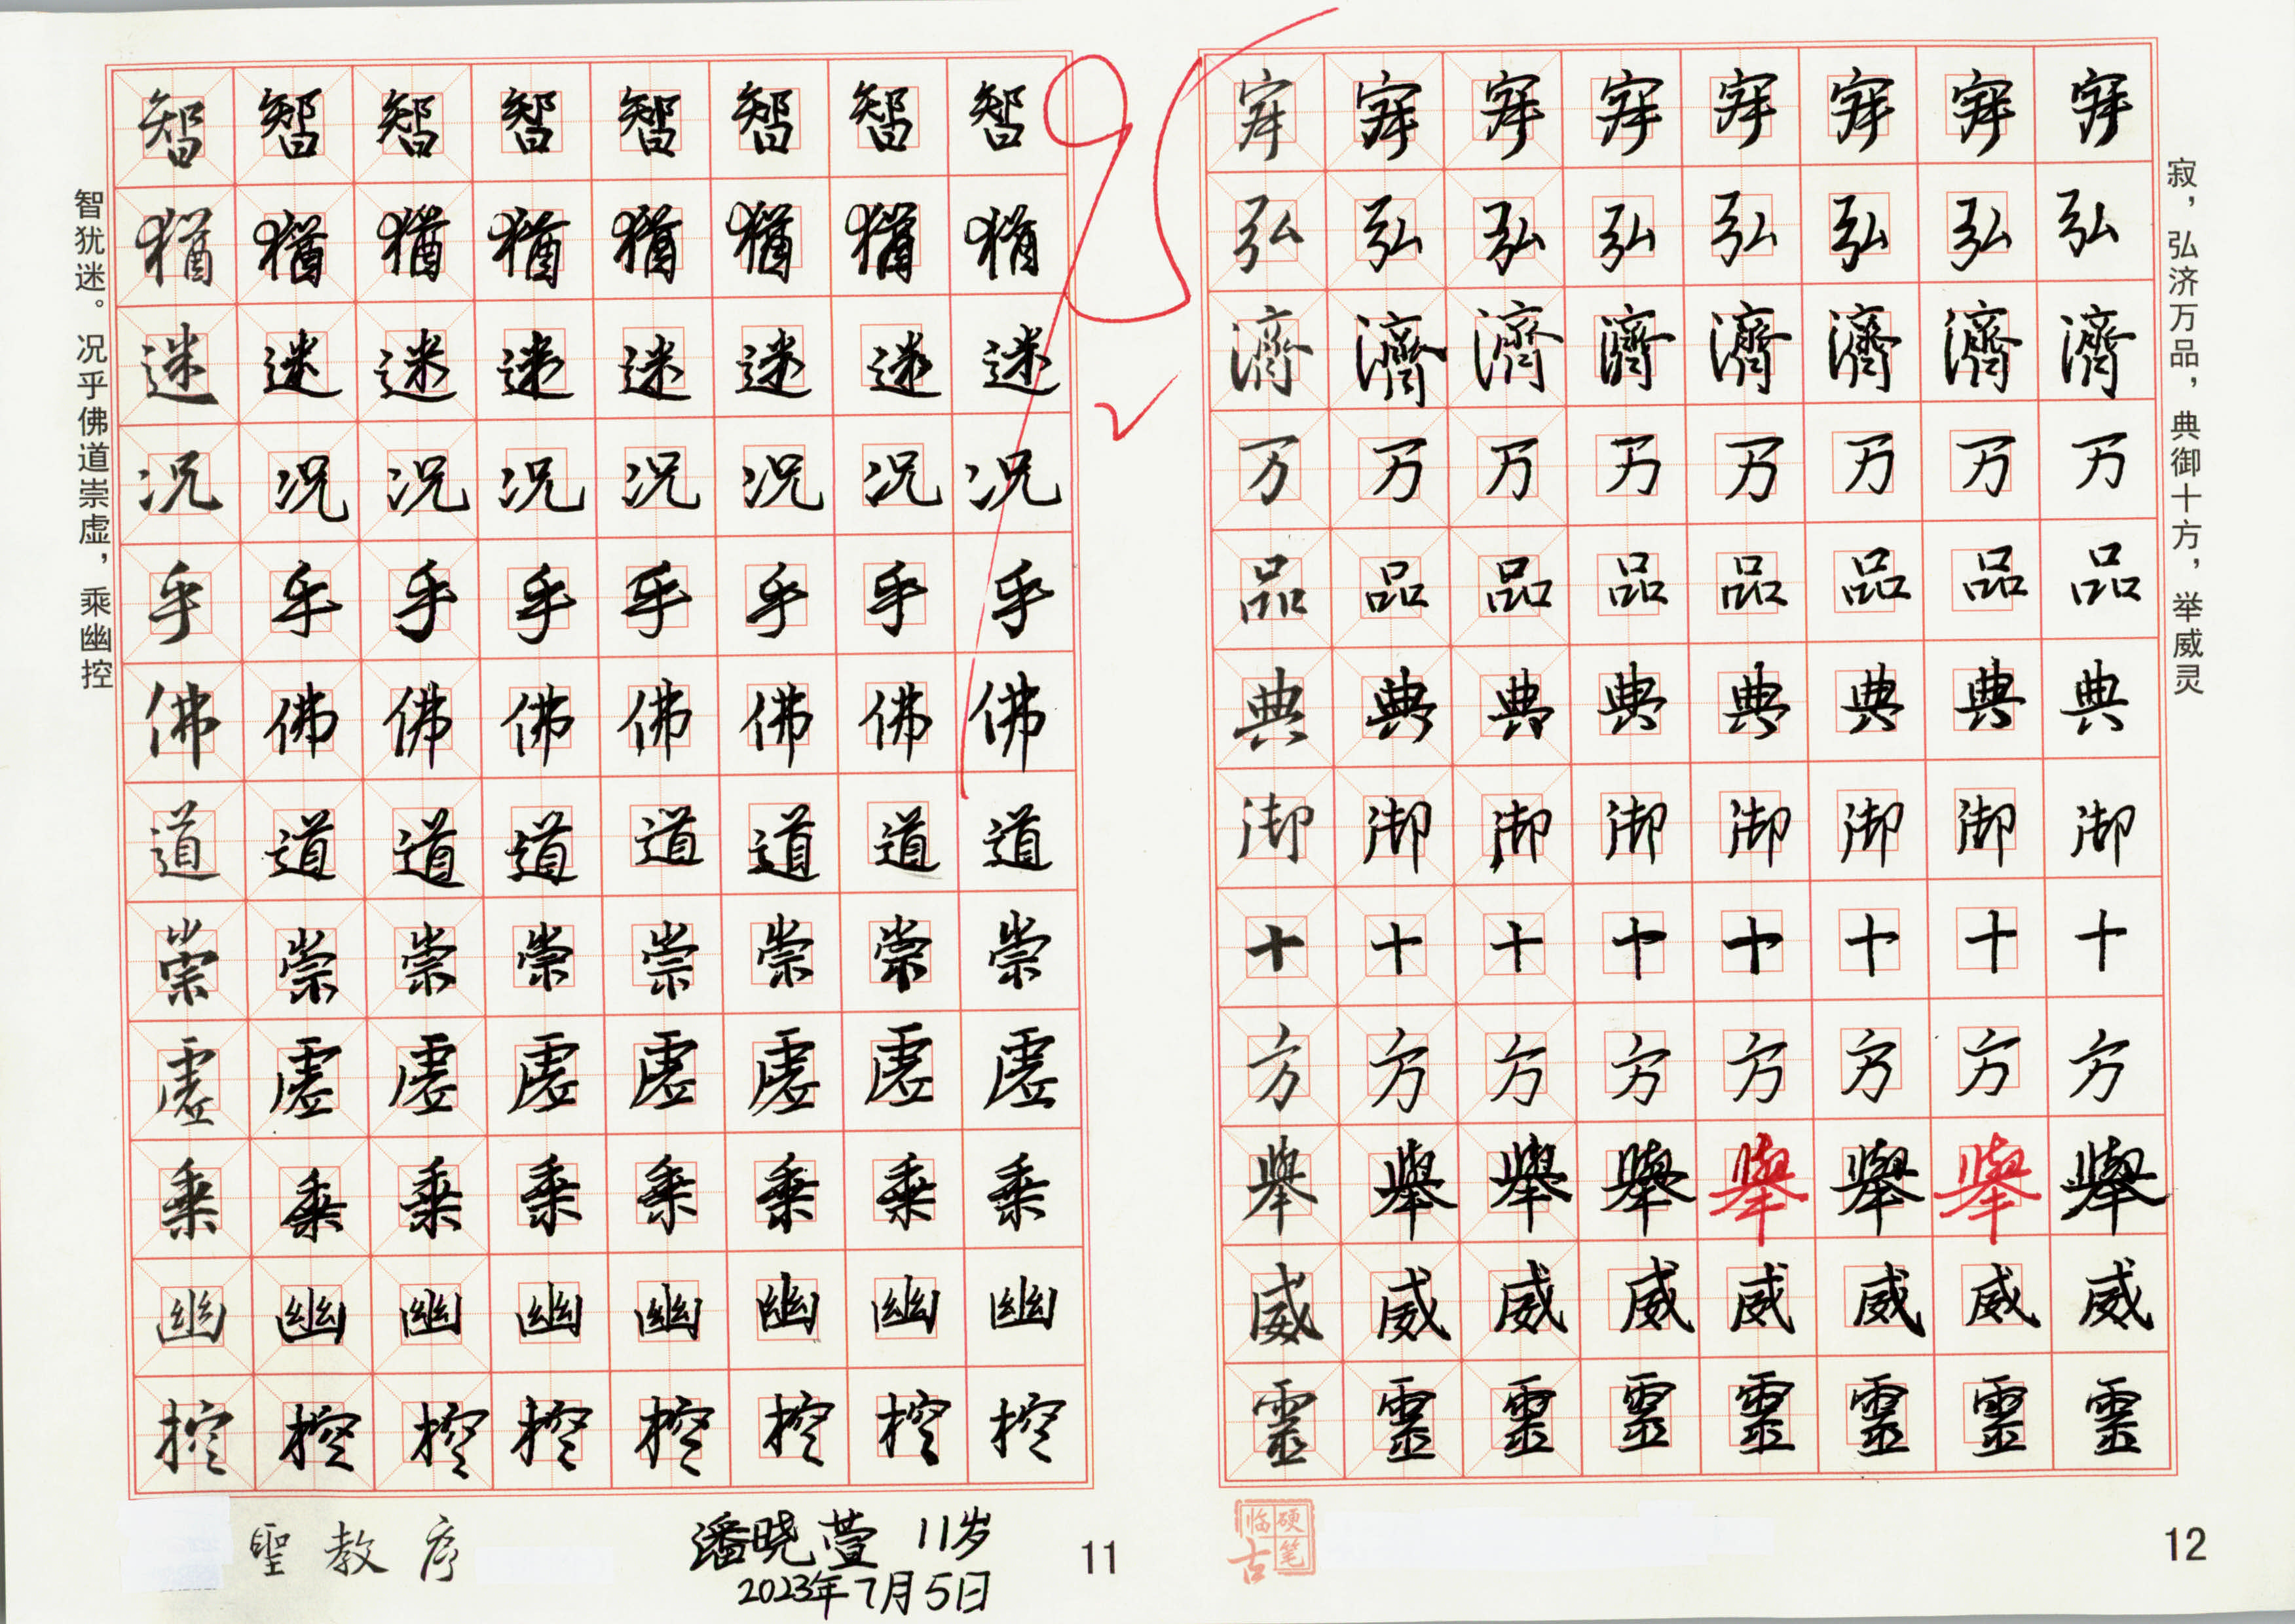 智犹迷。况乎佛道崇虚，乘幽控
智智智智智智智智
猶猶猶猶猶猶猶猶
迷迷迷迷迷迷迷迷
况况况况况况况况
乎乎乎乎乎乎乎乎
佛佛佛佛佛佛佛佛
道道道道道道道道
崇崇崇崇崇崇崇崇
虚虚虚虚虚虚虚虚
乘乘乘乘乘乘乘乘
幽幽幽幽幽幽幽幽
控控控控控控控控
聖教序
潘晓萱 11岁
2023年7月5日
11
95
寂，弘济万品，典御十方，举威灵
寂寂寂寂寂寂寂寂
弘弘弘弘弘弘弘弘
濟濟濟濟濟濟濟濟
万万万万万万万万
品品品品品品品品
典典典典典典典典
御御御御御御御御
十十十十十十十十
方方方方方方方方
舉舉舉舉舉舉舉舉
威威威威威威威威
靈靈靈靈靈靈靈靈
硬笔临古
12